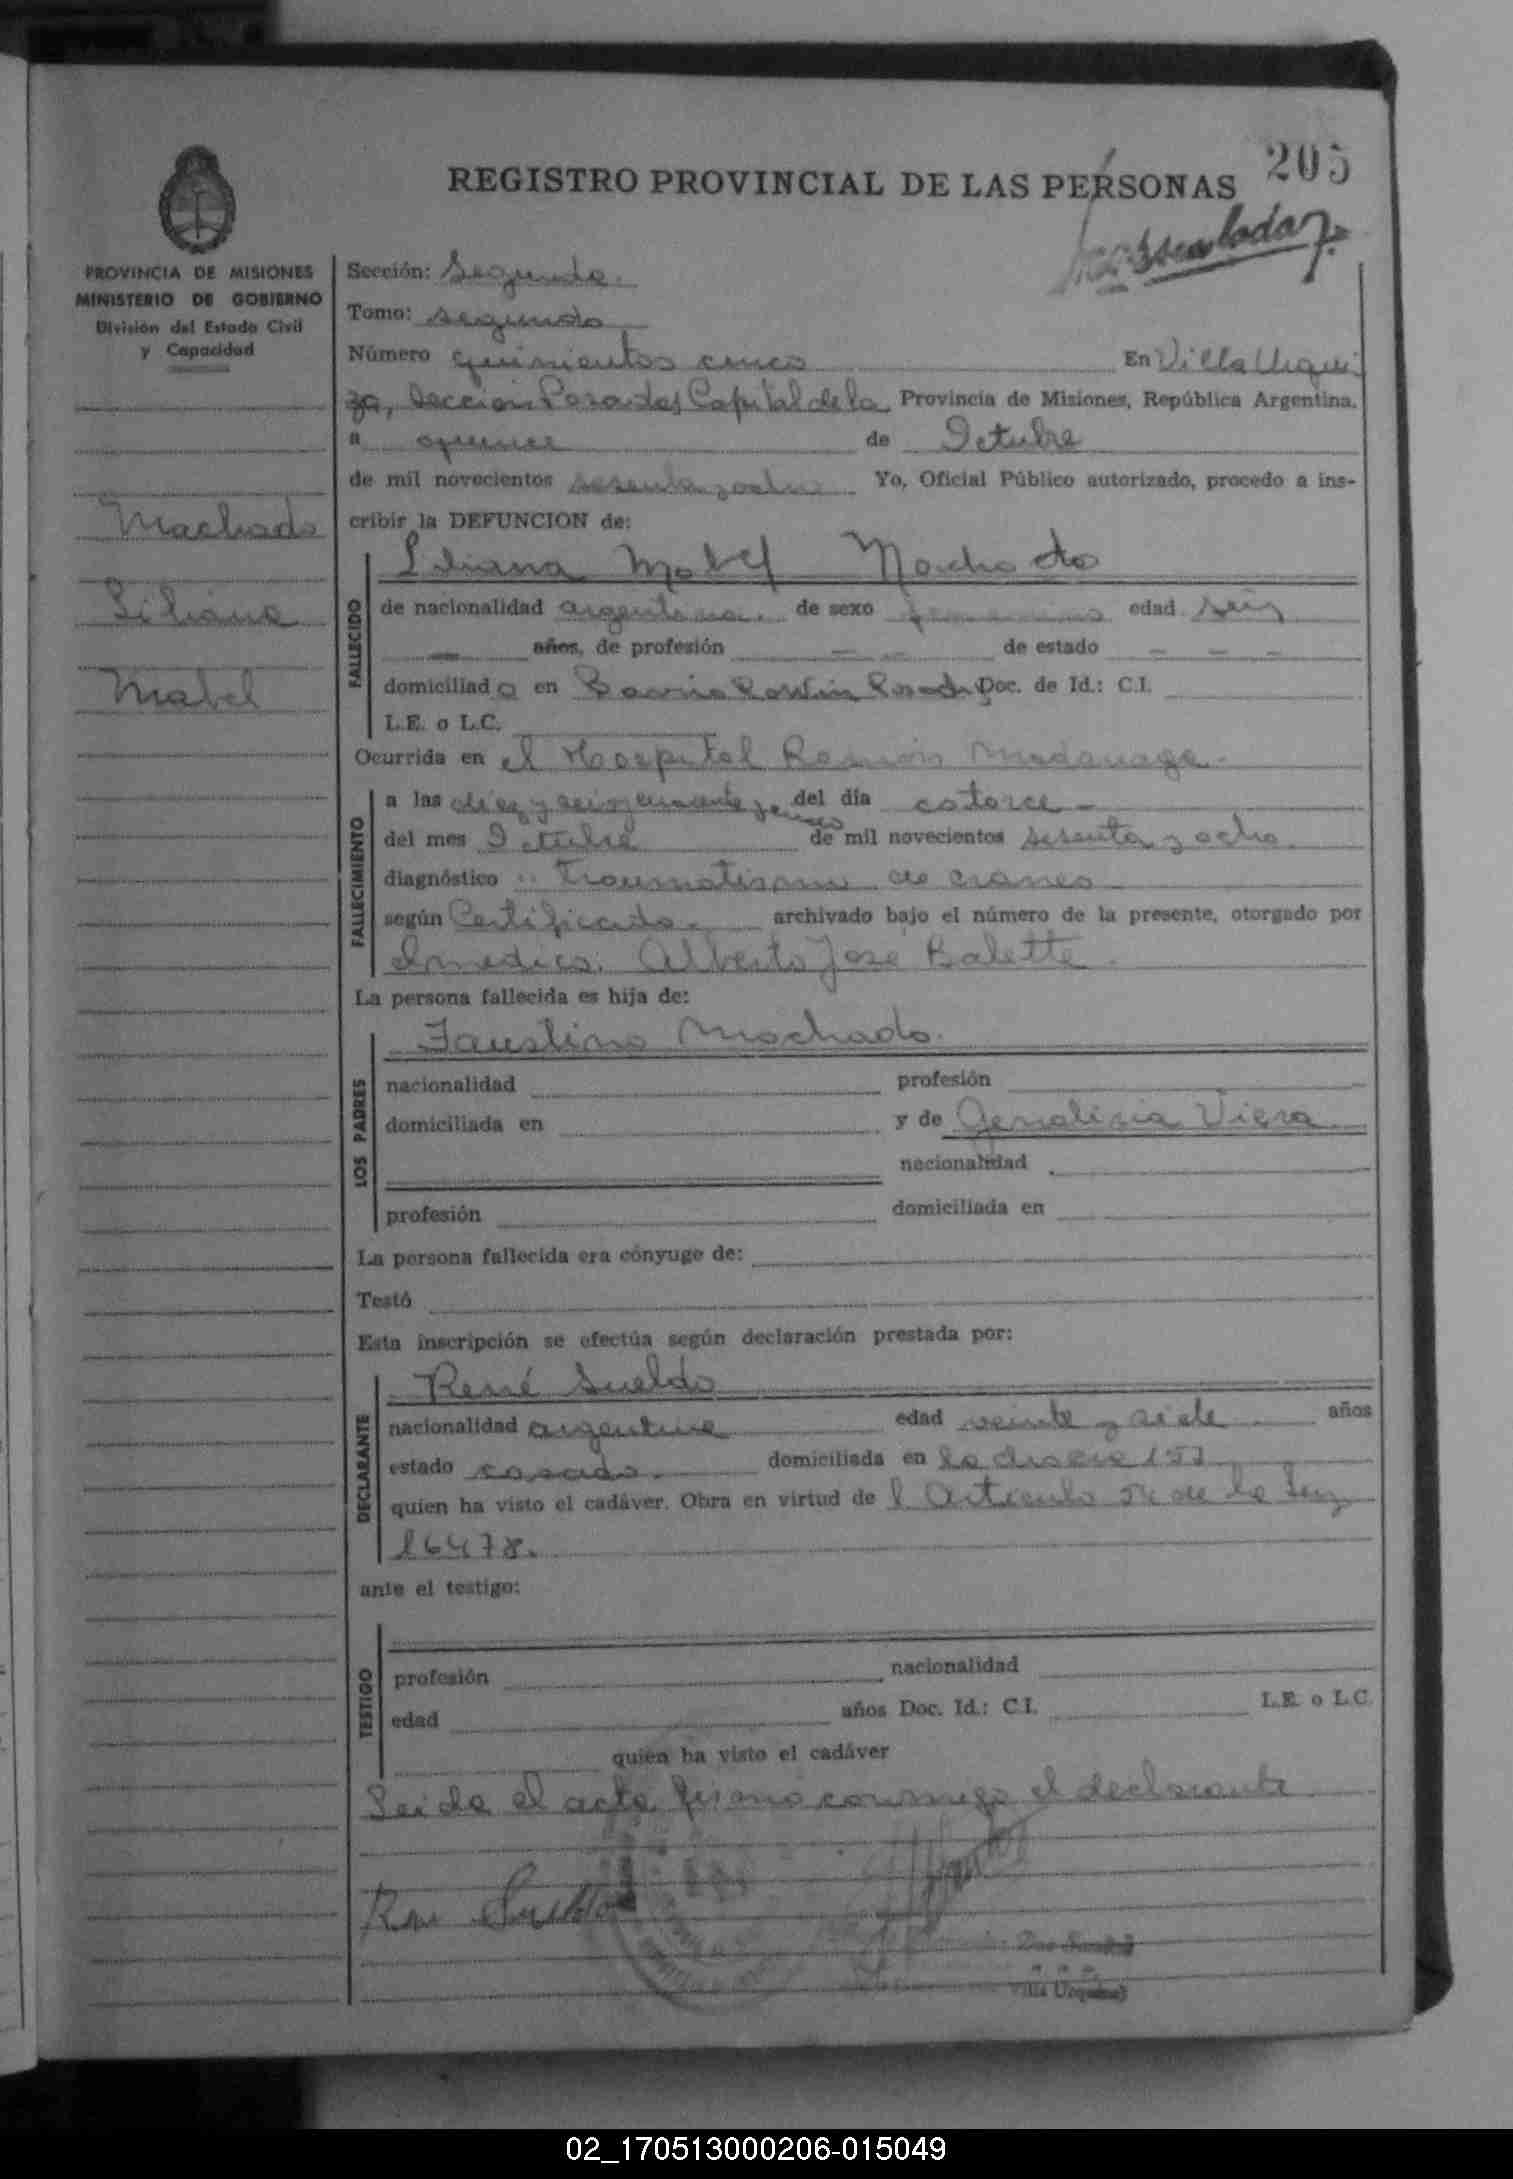 205
REGISTRO PROVINCIAL DE LAS PERSONAS
PROVINCIA DE MISIONES
MINISTERIO DE GOBIERNO
División del Estado Civil
y Capacidad
Machado
Liliana
Mabel
Sección: Segunda.
Tomo: segundo
Número quinientos cinco En Villa Urqui
za, Sección Posadas Capital de la Provincia de Misiones, República Argentina,
a quince de Octubre
de mil novecientos sesenta y ocho Yo, Oficial Público autorizado, procedo a ins-
cribir la DEFUNCION de:
Liliana Mabel Machado
FALLECIDO
de nacionalidad argentina. de sexo femenino edad seis
— años, de profesión — — de estado — — —
domiciliada en Barrio Posadas Doc. de Id.: C.I.
L.E. o L.C.
Ocurrida en el Hospital Ramón Madariaga.
FALLECIMIENTO
a las diez y seis y cuarenta y cinco del día catorce —
del mes Octubre de mil novecientos sesenta y ocho
diagnóstico Traumatismo de craneo
según Certificado. archivado bajo el número de la presente, otorgado por
el medico: Alberto José Balette.
La persona fallecida es hija de:
LOS PADRES
Faustino Machado.
nacionalidad profesión
domiciliada en y de Viera
nacionalidad
profesión domiciliada en
La persona fallecida era cónyuge de:
Testó
Esta inscripción se efectúa según declaración prestada por:
DECLARANTE
René Sueldo
nacionalidad argentina edad veinte y siete años
estado casado. domiciliada en
quien ha visto el cadáver. Obra en virtud de l Articulo de la Ley
16478.
ante el testigo:
TESTIGO
profesión nacionalidad
edad años Doc. Id.: C.I. L.E. o L.C.
quien ha visto el cadáver
Leida el acta firmó conmigo el declarante
Rene Sueldo
Villa Urquiza
02_170513000206-015049